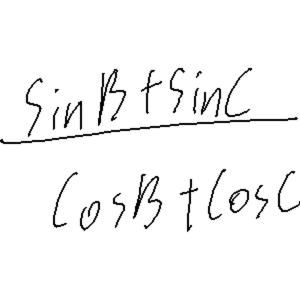 SinB+SinC
CosB+CosC